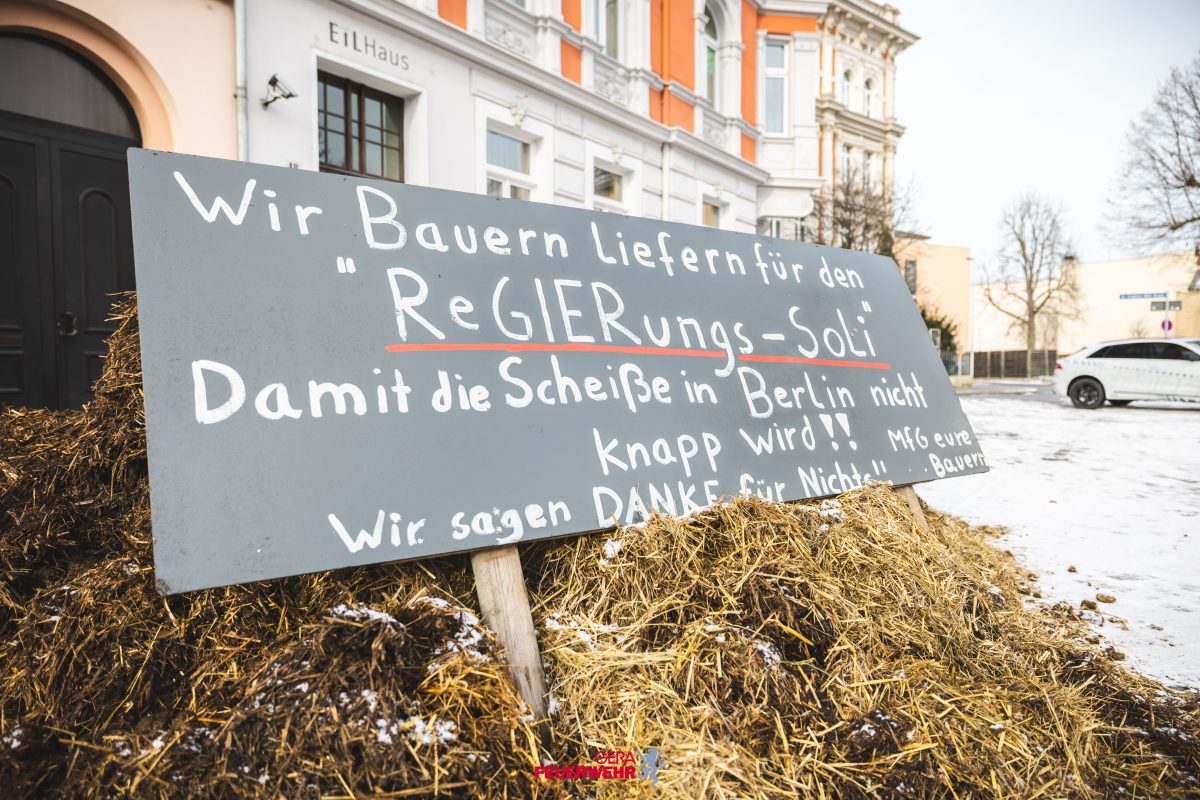 EiLHaus
Wir Bauern Liefern für den
"ReGIERungs-SoLi"
Damit die Scheiße in Berlin nicht
Knapp wird!!
MfG eure
Bauern
Wir sagen DANKE für Nichts"
GERA
FEUERWEHR